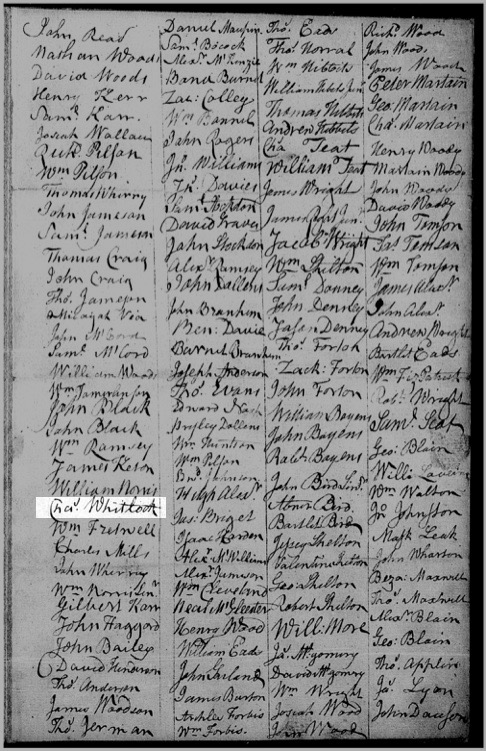 John Read
Nathan Woods
David Woods
Henry Kerr
Saml. Karr.
Josiah Wallace
Richd. Pilson
Wm Pilson
Thomas Whirry
John Jameson
Saml. Jameson
Thomas Craig
John Craig
Tho. Jameson
Micajah Via
John McCord
Saml. McCord
William Woods
Wm
John Black
John Black
Wm Ramsey
James Keson
William Norris
Chas. Whitlock
Wm Fretwell
Charles Mills
John Wherry
Wm Norris Jnr.
Gilbert Karr
John Haggard
John Bailey
David Henderson
Tho. Anderson
James Woodson
Tho. Jerman
Daniel Maupin
Saml. Bocock
Alexr. McKenzie
Zac: Colley
Wm
John Rogers
Jn. Williams
Davies
Saml. Stockton
David Graves
John Stockton
Alexr. Ramsey
John
John Branham
Ben: Davis
Barnet Branham
Joseph Anderson
Tho. Evans
Edward
Wm
Wm Pilson
Johnson
Hugh Alexr.
Jas: Briget
Isaac Harden
Alexr. McWilliams
Alexr. Jameson
Wm Cleveland
Henry Wood
William Eads
John Garland
James Burton
Achles Forbis
Wm Forbis.
Tho. Eads
Tho. Norral
Wm
William
Thomas
Andrew
Cha. Teat
William Teat
James Wright
James
Jacob Wright
Wm Shilton
Saml. Denney
John Denney
James Denney
Tho. Forton
Zack: Forton
John Forton
William Bayens
John Bayens
Ralph Bayens
John Bird
Abner Bird
Bartlet Bird
Shelton
Valentine Shelton
Geo: Shelton
Robert Shelton
Will: More
Ja. Mtgomery
David Mtgomry
Wm Wright
Josiah Wood
Jno Wood
Richd. Wood
John Wood.
James Wood
Peter Martain
Geo: Martain
Cha. Martain
Henry Woody
Martain Woody
John Woody
David Woody
John Tomson
Jas Tomson
Wm Tomson
James Alexr.
John Alexr.
Andrew Wright
Bartlet Eads
Wm Fizpatrick
Robt. Wright
Saml.
Geo: Blain
Willi
Wm Walton
Jn Johnston
Mask Leak
John Wharton
Beza: Maxwell
Tho. Maxwell
Alexr. Blain
Geo: Blain
Tho. Applin
Ja. Lyon
John Dawson